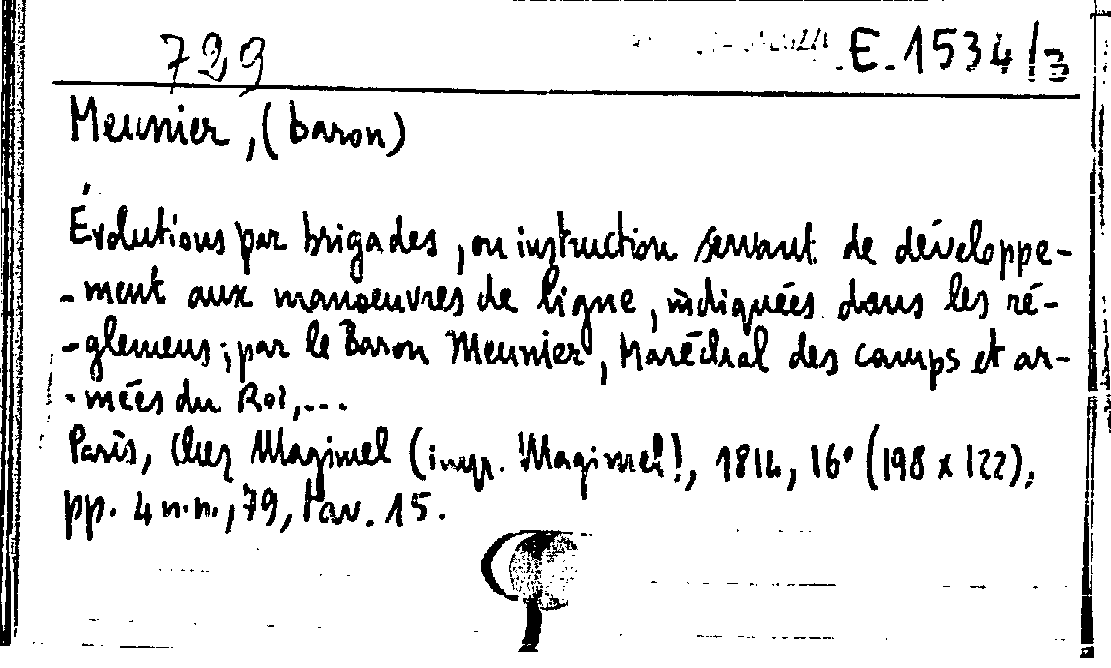 729
E.1534/3
Meunier, (baron)
Évolutions par brigades, ou instruction servant de développe-
-ment aux manoeuvres de ligne, indiquées dans les ré-
-glemens; par le Baron Meunier, Maréchal des camps et ar-
-mées du Roi,...
Paris, chez Magimel (impr. Magimel), 1814, 16° (198 x 122),
pp. 4 n.n., 79, tav. 15.